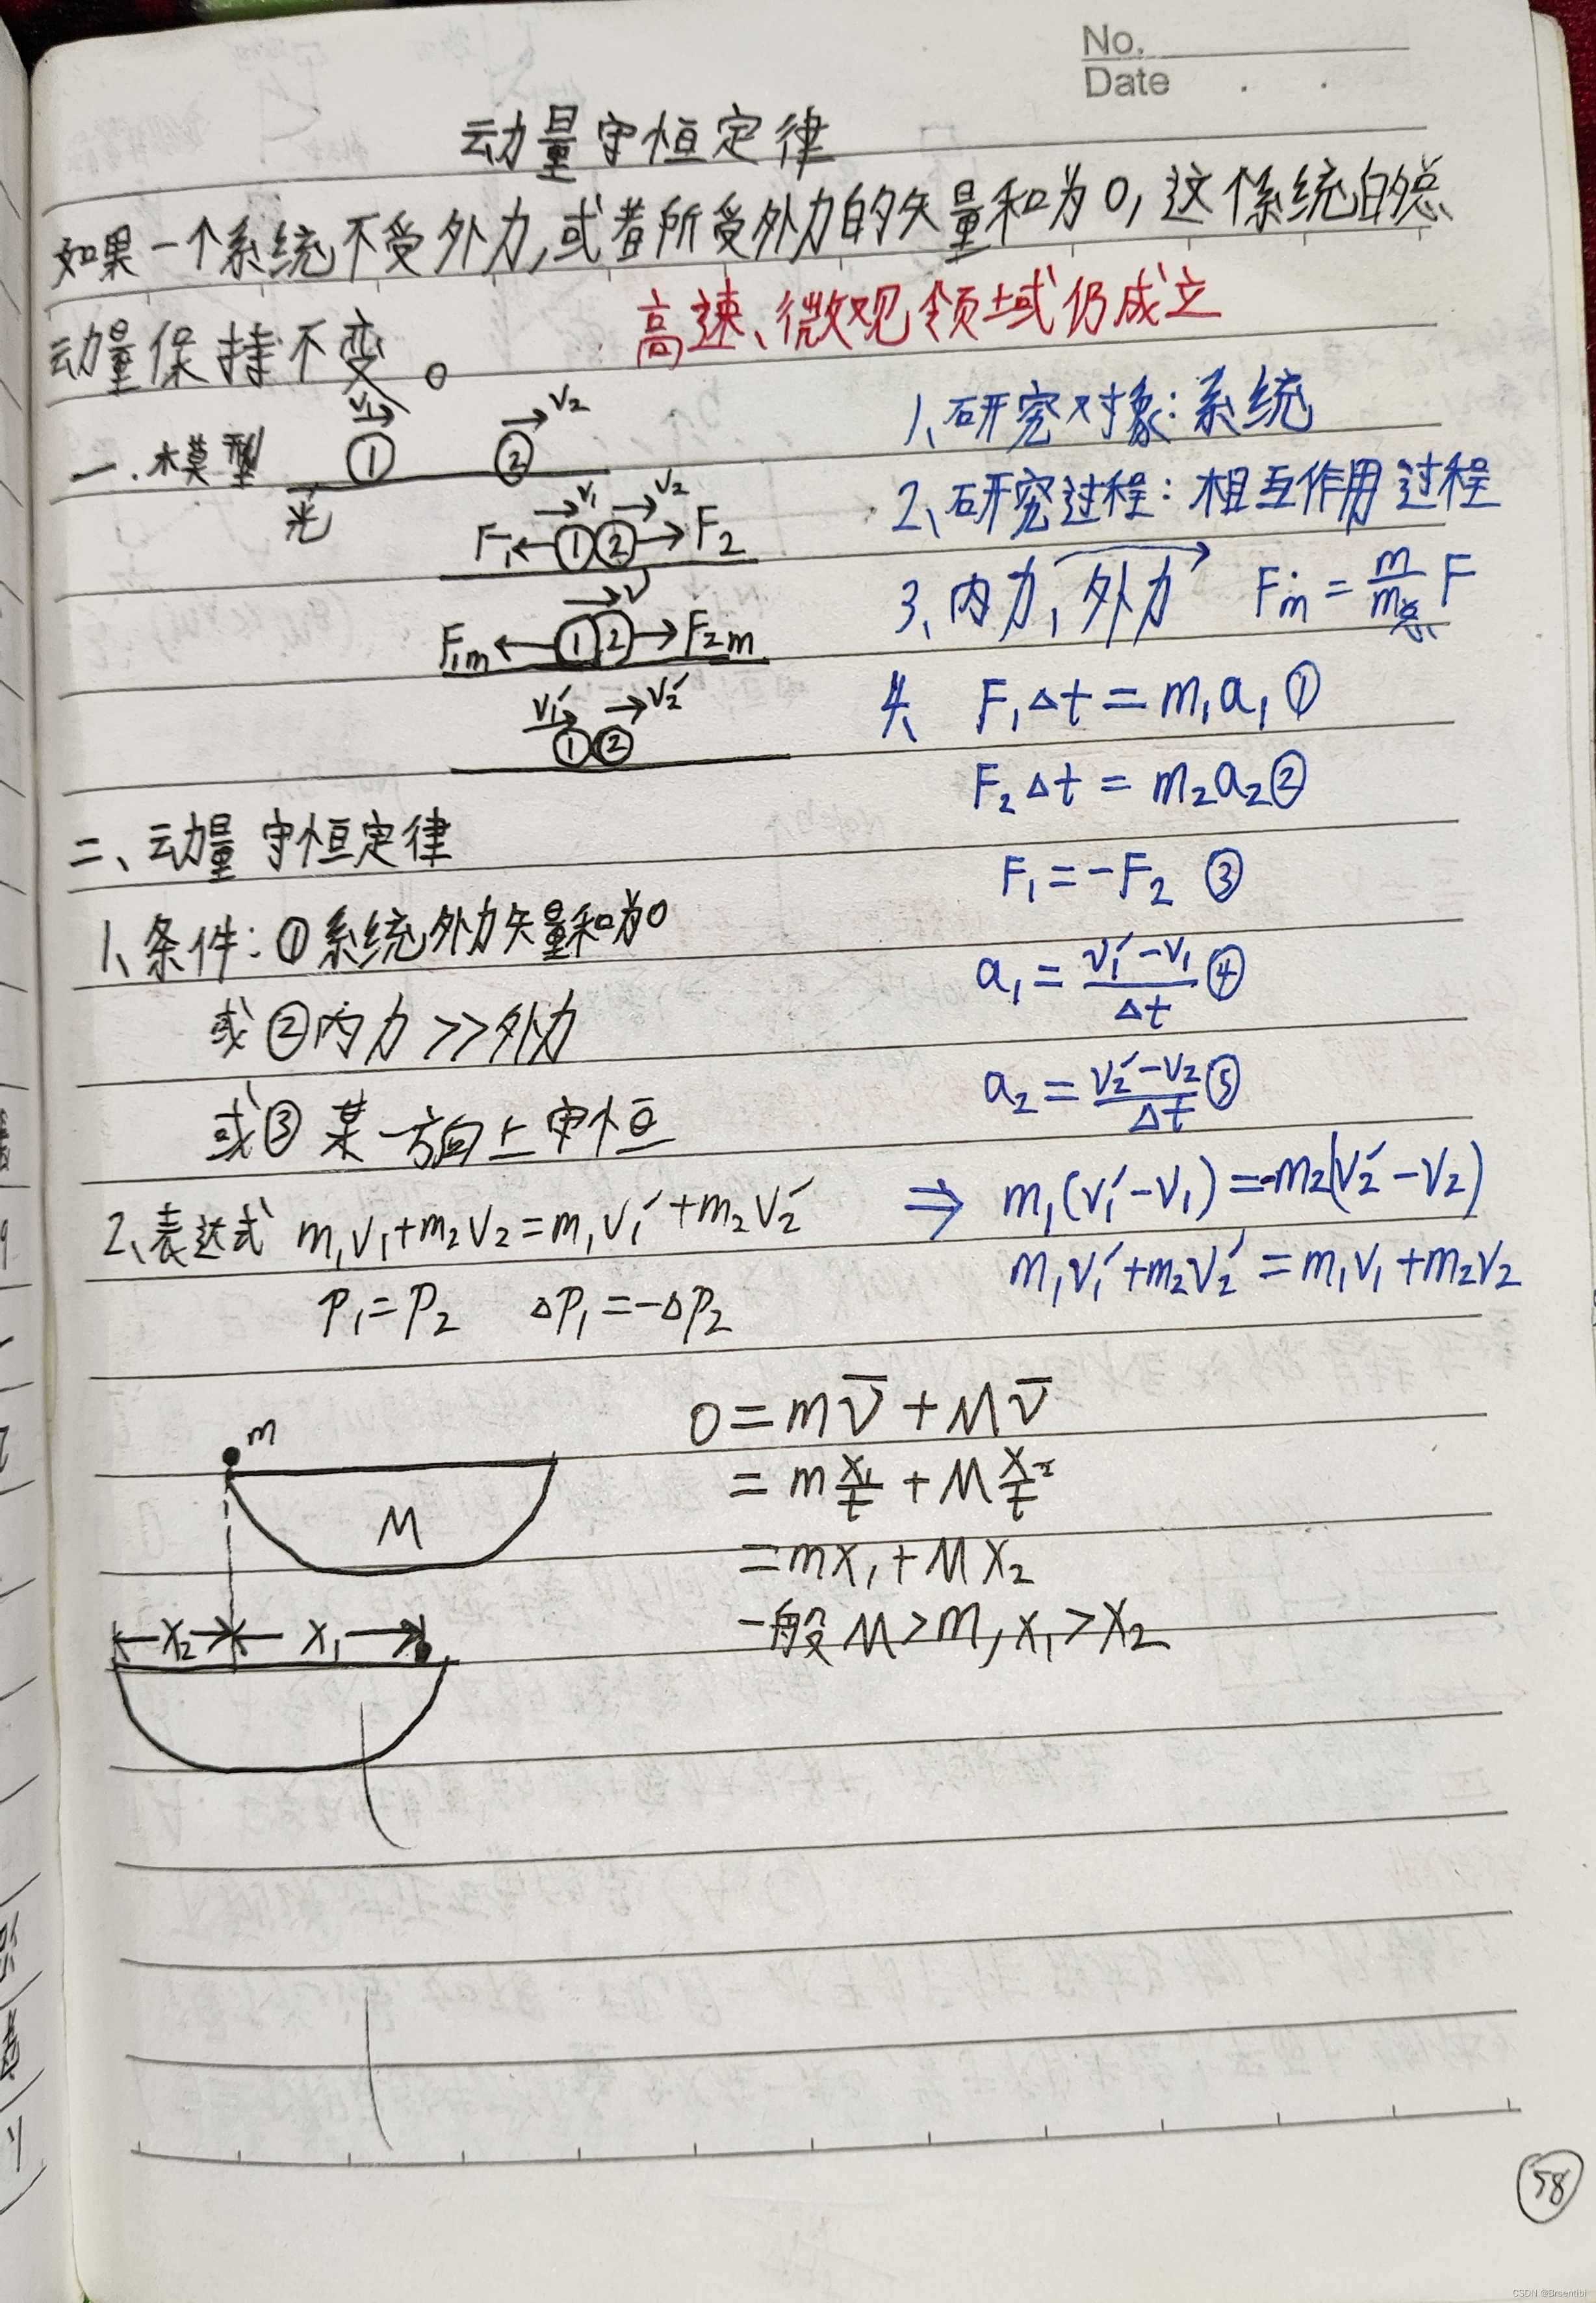 No.
Date
动量守恒定律
如果一个系统不受外力,或者所受外力的矢量和为0,这个系统的总
动量保持不变。
高速、微观领域仍成立
一.模型
V₁ ① V₂ ②
光
F₁ ① ② F₂ V₁ V₂
F₁m ① ② F₂m V
V₁′ ① V₂′ ②
1、研究对象:系统
2、研究过程:相互作用过程
3、内力,外力 Fm = m/m总 F
4、 F₁Δt = m₁a₁ ①
F₂Δt = m₂a₂ ②
F₁ = -F₂ ③
a₁ = (V₁′-V₁)/Δt ④
a₂ = (V₂′-V₂)/Δt ⑤
⇒ m₁(V₁′-V₁) = -m₂(V₂′-V₂)
m₁V₁′+m₂V₂′ = m₁V₁+m₂V₂
二、动量守恒定律
1、条件:①系统外力矢量和为0
或②内力>>外力
或③某一方向上守恒
2、表达式 m₁V₁+m₂V₂=m₁V₁′+m₂V₂′
P₁=P₂ ΔP₁=-ΔP₂
m
M
X₂ X₁
0 = mv̅ + Mv̅
= m X₁/t + M X₂/t
= mX₁ + MX₂
一般M>m, X₁>X₂
58
CSDN @Brsentibi